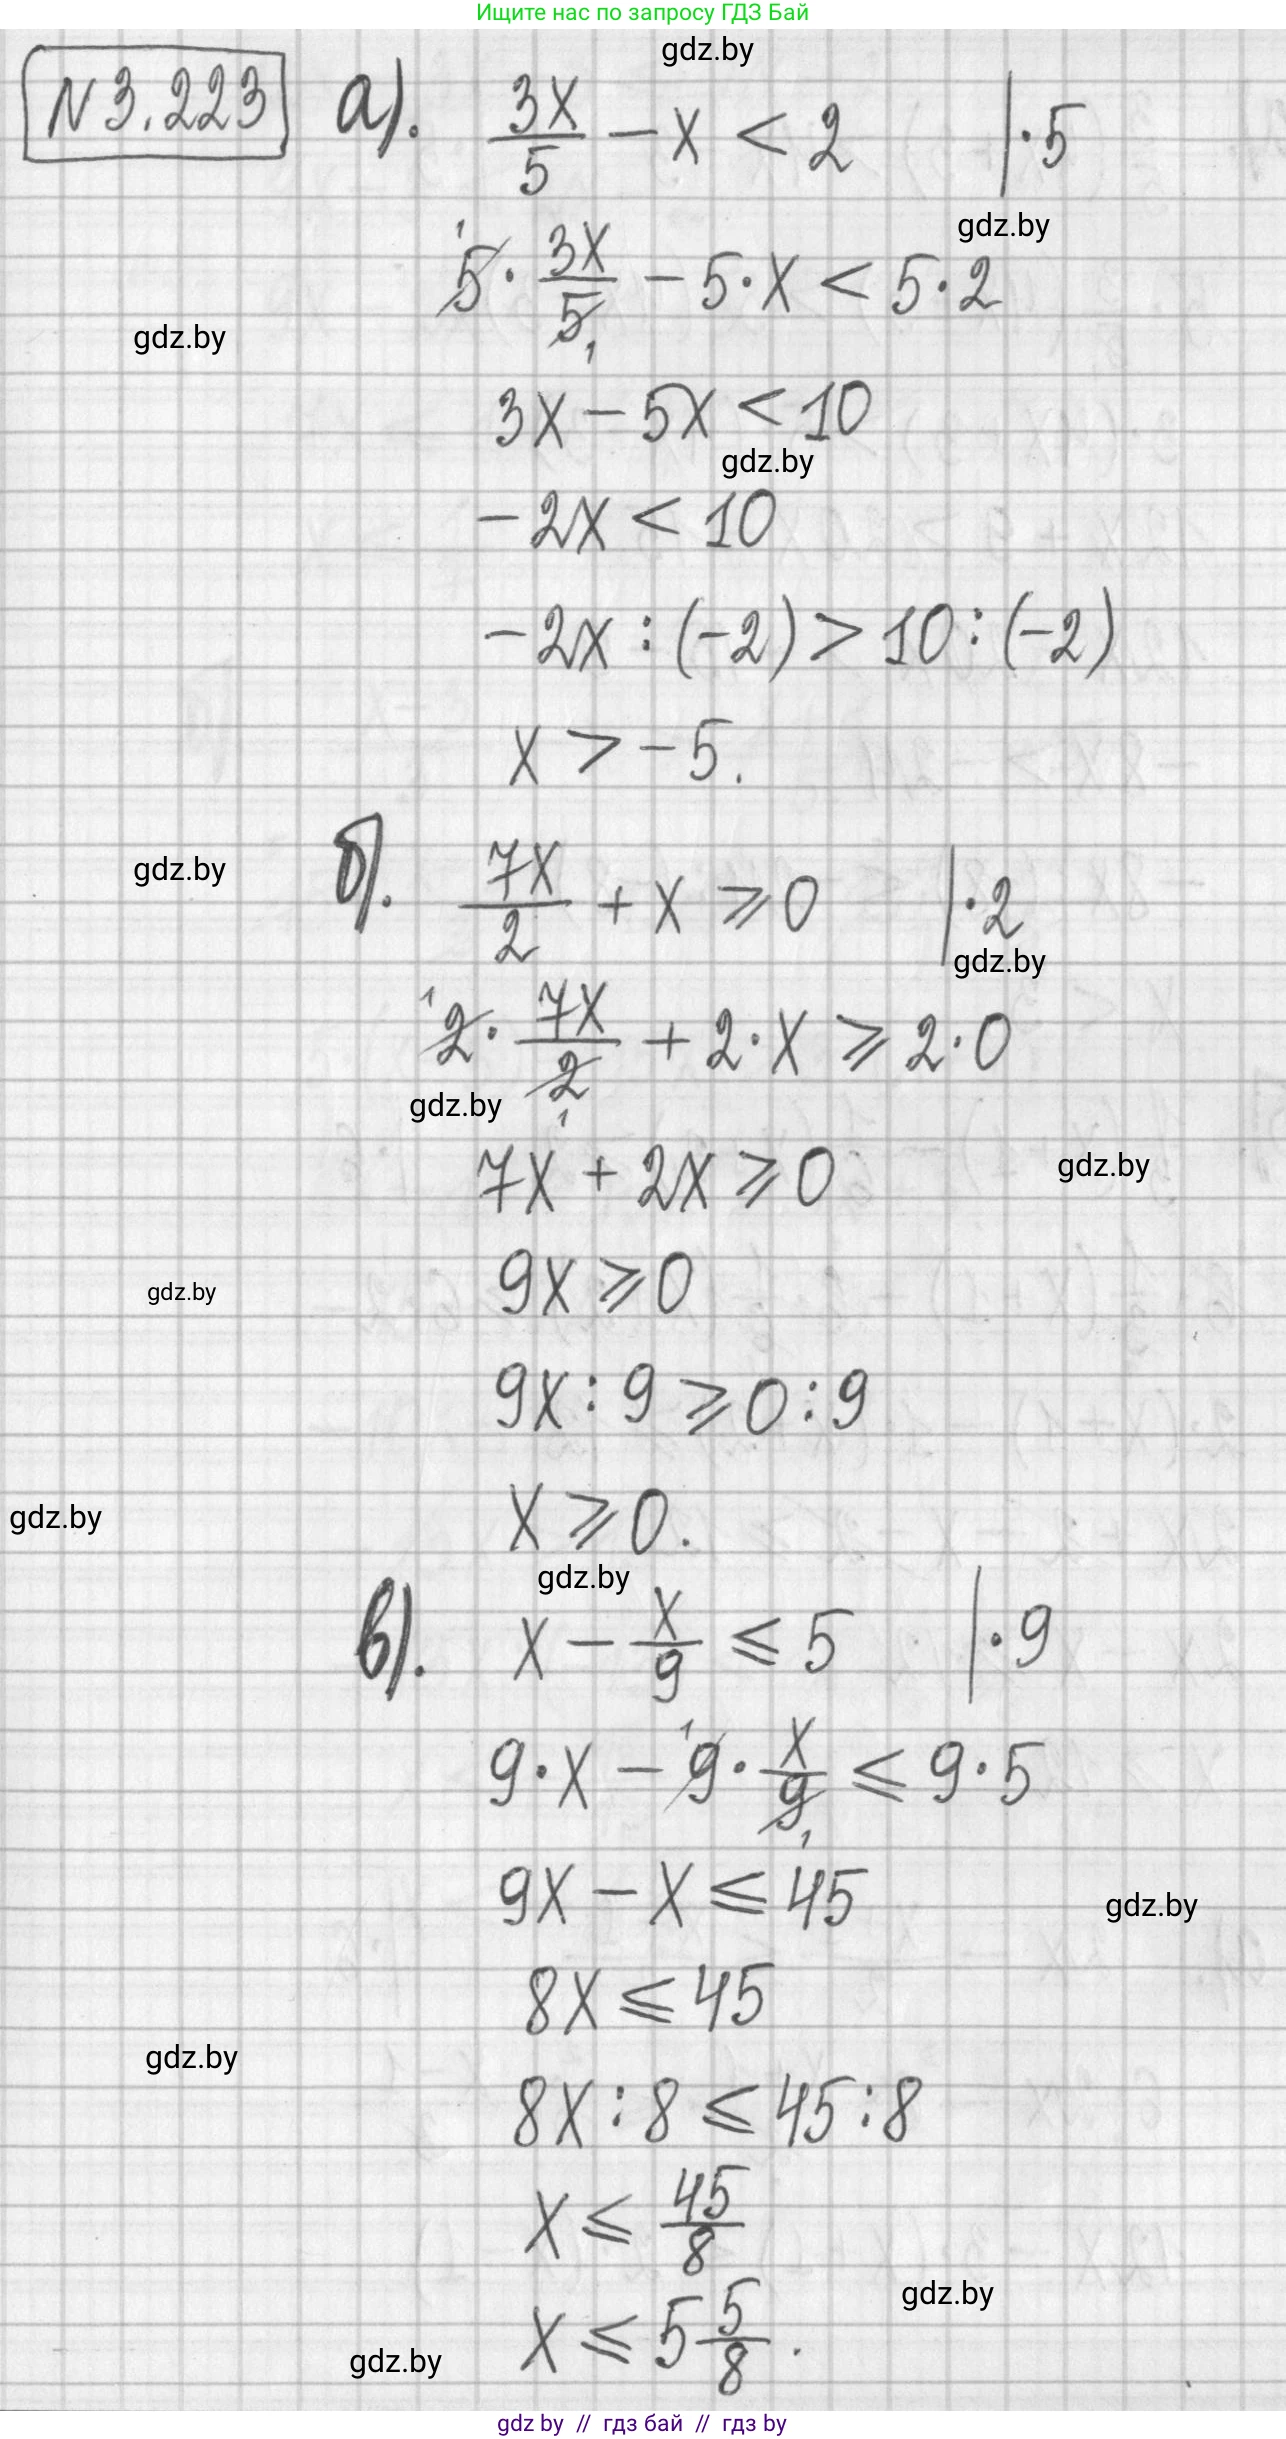 Ищите нас по запросу ГДЗ Бай
gdz.by
N 3.223 а). 3x/5 − x < 2 | · 5
gdz.by
5 · 3x/5 − 5 · x < 5 · 2
gdz.by
3x − 5x < 10
gdz.by
−2x < 10
−2x : (−2) > 10 : (−2)
x > −5.
gdz.by
б). 7x/2 + x ⩾ 0 | · 2
gdz.by
2 · 7x/2 + 2 · x ⩾ 2 · 0
gdz.by
7x + 2x ⩾ 0
gdz.by
9x ⩾ 0
gdz.by
9x : 9 ⩾ 0 : 9
x ⩾ 0.
gdz.by
gdz.by
в). x − x/9 ⩽ 5 | · 9
9 · x − 9 · x/9 ⩽ 9 · 5
9x − x ⩽ 45
gdz.by
8x ⩽ 45
gdz.by
8x : 8 ⩽ 45 : 8
x ⩽ 45/8
gdz.by
x ⩽ 5 5/8.
gdz.by
gdz by // гдз бай // гдз by